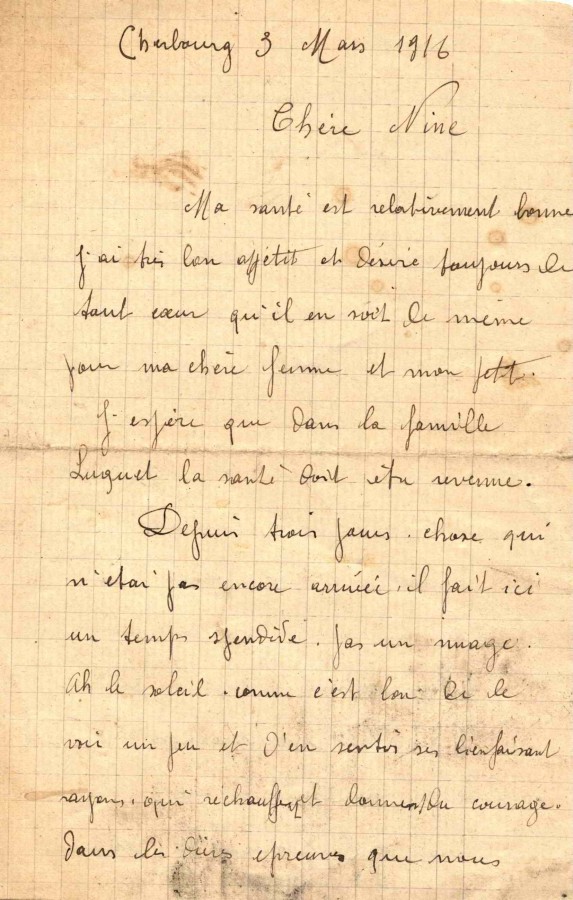 Cherbourg 3 Mars 1916
Chère Nine
Ma santé est relativement bonne
j'ai très bon appétit et désire toujours de
tout cœur qu'il en soit de même
pour ma chère femme et mon petit.
J'espère que dans la famille
Luquet la santé doit être revenue.
Depuis trois jours. chose qui
n'étai pas encore arrivée, il fait ici
un temps spendide. pas un nuage.
Ah le soleil. comme c'est bon de le
voir un peu et d'en sentir ses bienfaisant
rayons. qui réchauffent donnent du courage.
dans les dures epreuves que nous